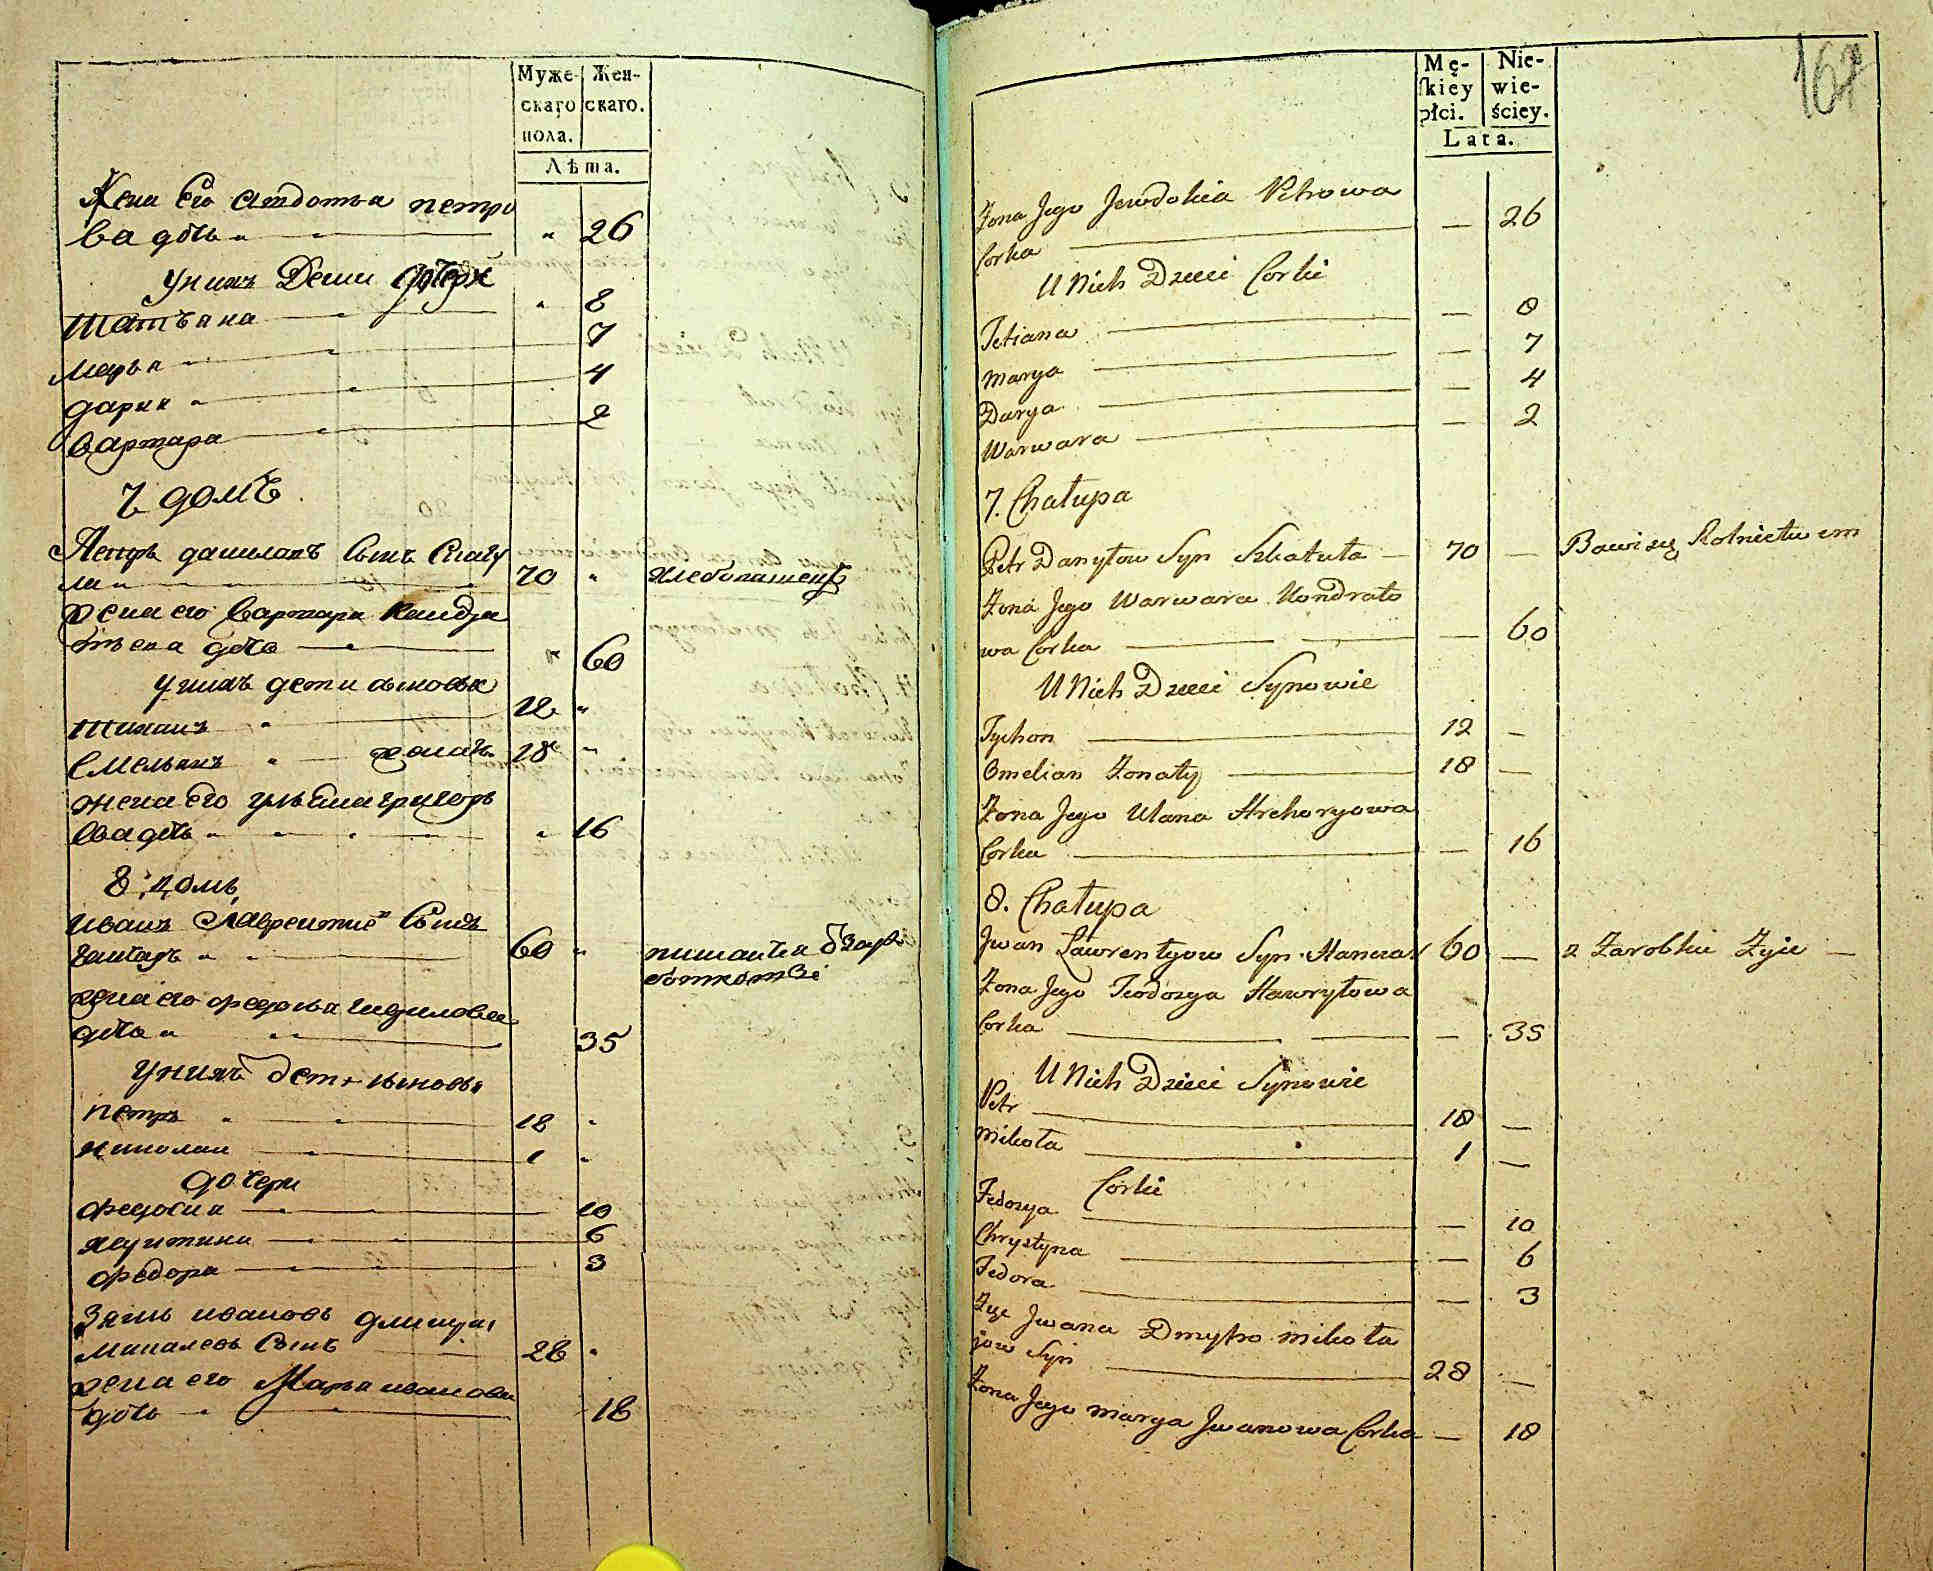 Муже-
скаго
пола.
Жен-
скаго.
Лѣта.
Жена Его Авдотья петро
ва дочь 26
У нихъ Дети Дочери
татьяна 8
марья 7
дария 4
варвара 2
7 домъ
Петръ даниловъ Сынъ
ла 70 хлебопашецъ
жена его варвара кондра
тьева дочь 60
У нихъ дети сыновья
тихонъ 12
Емельянъ женатъ 18
жена Его ульяна григорь
ева дочь 16
8 домъ
иванъ Лаврентиевъ Сынъ
ганчаръ 60 питаится
жена его федосья гавриловна
дочь 35
У нихъ дети сыновья
петръ 18
николаи 1
дочери
федосия 10
христина 6
федора 3
зять ивановъ дмитри
михалевъ Сынъ 28
жена его Марья иванова
дочь 18
Mę-
skiey
płci.
Nie-
wie-
ściey.
Lata.
167
Zona Jego Jewdokia Petrowa
Corka — 26
U Nich Dzieci Corki
Tetiana — 8
Marya — 7
Darya — 4
Warwara — 2
7. Chałupa
Petr Danyłow Syn Szkatuła — 70 — Bawi się Rolnictwem
Zona Jego Warwara Kondrato
wa Corka — 60
U Nich Dzieci Synowie
Tychon 12 —
Omelian Zonaty 18 —
Zona Jego Ulana Hrehoryowa
Corka — 16
8. Chałupa
Jwan Ławrentyow Syn Hanczar 60 — z Zarobku Zyie —
Zona Jego Teodozya Hawryłowa
Corka — 35
U Nich Dzieci Synowie
Petr 18 —
Mikoła 1 —
Corki
Fedozya — 10
Chrystyna — 6
Fedora — 3
Zięc Jwana Dmytro Mikoła
jow Syn 28 —
Zona Jego Marya Jwanowa Corka — 18